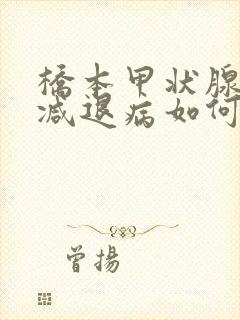 橋本甲状腺
减退病如何
曾揚